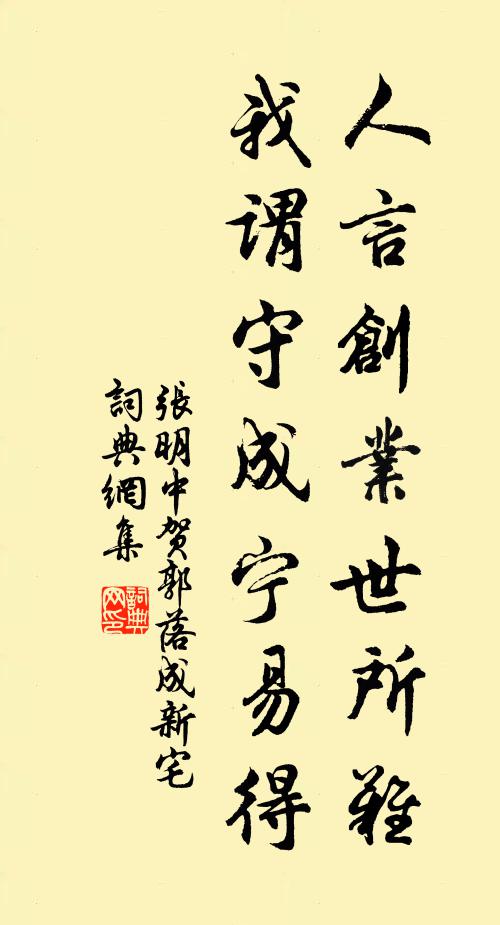 人言創業世所難
我謂守成宁易得
張明中賀郭落成新宅
詞典網集
詞典网印